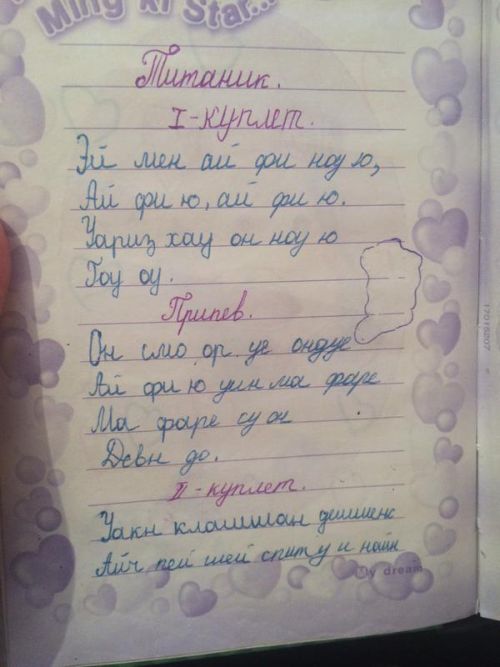 Ming xi Star...
Титаник.
I-куплет.
Эй мен ай фи ноу ю,
Ай фи ю, ай фи ю.
Уариз хау он ноу ю
Гоу оу.
Припев.
Он смо ор уе ондуе
Ай фи ю уин ма фаре
Ма фаре су он
Девн до.
II-куплет.
Уакн клашшан дешшенс
Айч пей шей спит у и найн
My dream